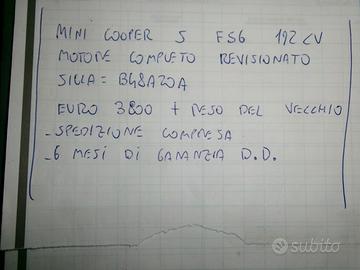 MINI COOPER S F56 192 CV
MOTORE COMPLETO REVISIONATO
SIGLA = B48A20A
EURO 3800 + RESO DEL VECCHIO
- SPEDIZIONE COMPRESA
- 6 MESI DI GARANZIA D.D.
subito